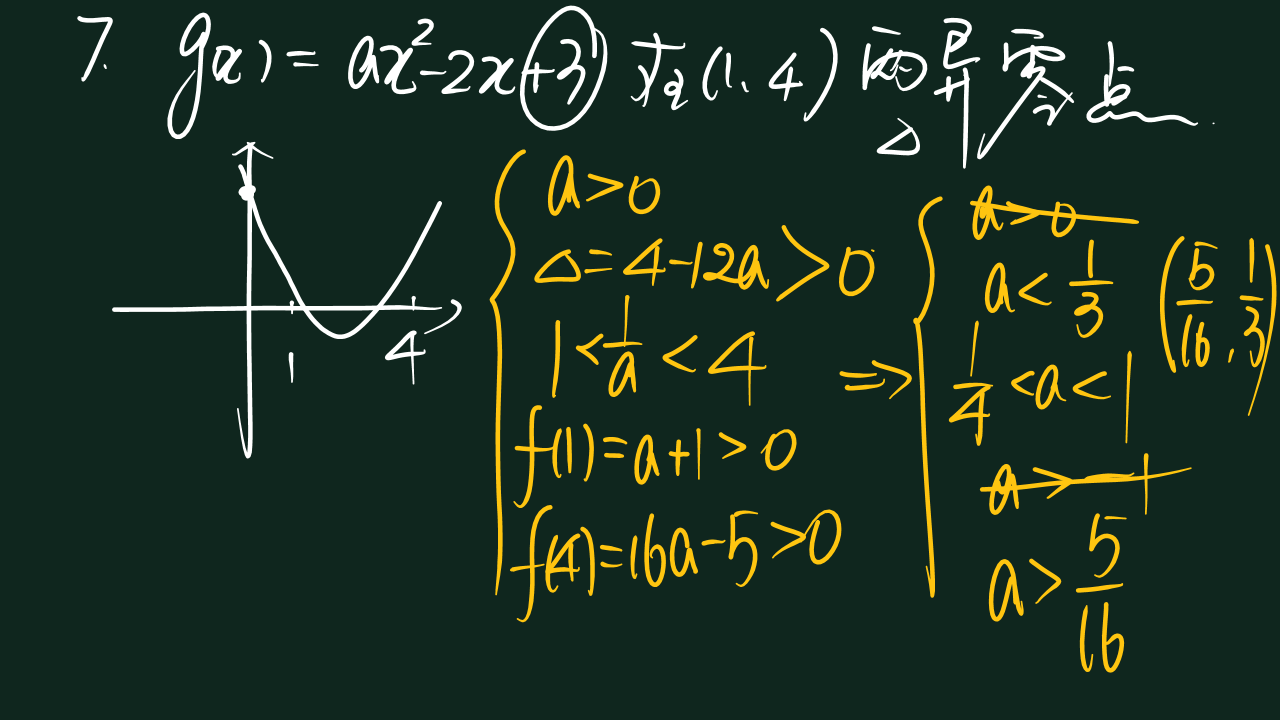 7. g(x) = ax²-2x+3 在(1, 4) 两异零点
Δ
1 4
a>0
Δ=4-12a>0
1<1/a<4
f(1)=a+1>0
f(4)=16a-5>0
=>
a>0
a<1/3
1/4<a<1
a>-1
a>5/16
(5/16, 1/3)